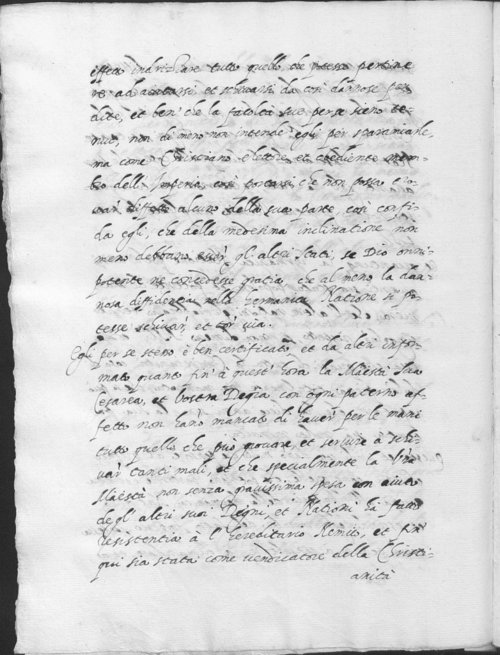 effetto indrizzare tutto quello che potesse pertine
re ad aiutarsi et schivarsi da così dannose per
dite, et ben che la facoltà sue per se sieno te
nui, non di meno non intende egli per sparamiarle,
ma come Christiano elettore et obediente mem-
bro dell' Imperio, così portarsi che non possa
difetto alcuno della sua parte, così confi-
da egli, che della medesima inclinatione non
meno debbano gl' altri stati, se Dio omni-
potente ne concedesse gratia che al meno la dan-
nosa diffidentia nella Germanica Natione si po-
tesse schivar, et tor via.
Egli per se stesso è ben certificato et da altri infor-
mato quanto fin' à quest' hora la Maestà Sua
Cesarea, et Vostra Regia con ogni paterno af-
fetto non hanno mancato di haver per le mani
tutto quello che può giovare et servire à schi-
var tanti mali, et che specialmente la Vra
Maestà non senza gravissima spesa con aiuto
degl' altri suoi Regni, et Nationi ha fatto
resistentia à l' hereditario Nemico, et fin
qui sia stata come vendicatore della Christi-
anità